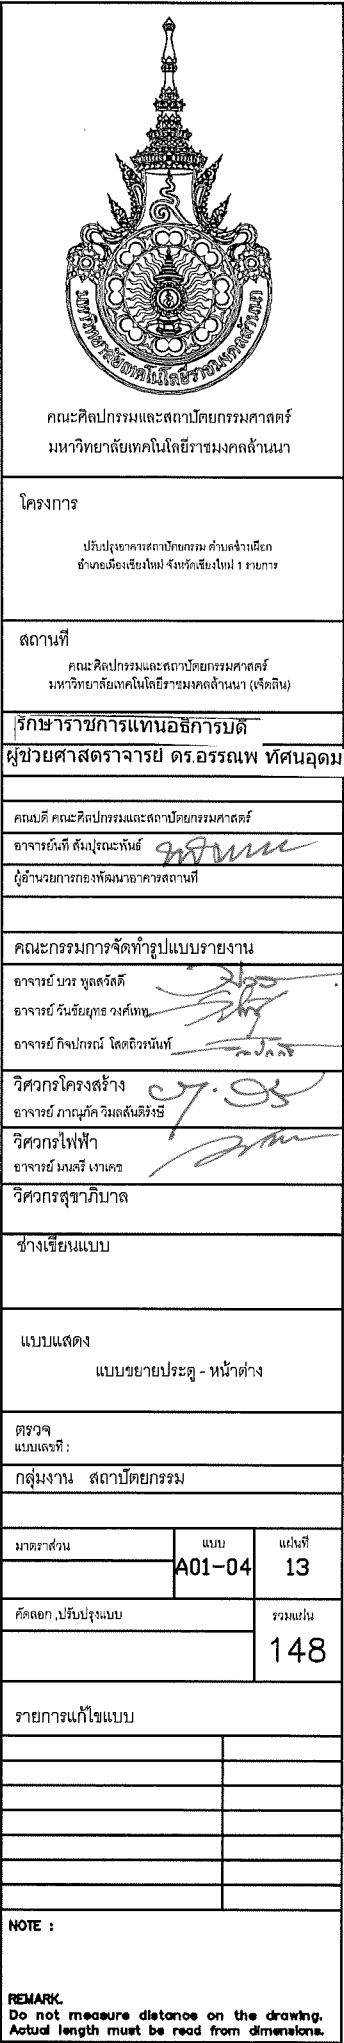 มหาวิทยาลัยเทคโนโลยีราชมงคลล้านนา
คณะศิลปกรรมและสถาปัตยกรรมศาสตร์
มหาวิทยาลัยเทคโนโลยีราชมงคลล้านนา
โครงการ
ปรับปรุงอาคารสถาปัตยกรรม ตำบลช้างเผือก
อำเภอเมืองเชียงใหม่ จังหวัดเชียงใหม่ 1 รายการ
สถานที่
คณะศิลปกรรมและสถาปัตยกรรมศาสตร์
มหาวิทยาลัยเทคโนโลยีราชมงคลล้านนา (เจ็ดลิน)
รักษาราชการแทนอธิการบดี
ผู้ช่วยศาสตราจารย์ ดร.อรรณพ ทัศนอุดม
คณบดี คณะศิลปกรรมและสถาปัตยกรรมศาสตร์
อาจารย์นที สัมปุรณะพันธ์
ผู้อำนวยการกองพัฒนาอาคารสถานที่
คณะกรรมการจัดทำรูปแบบรายงาน
อาจารย์ บวร พูลสวัสดิ์
อาจารย์ วันชัยยุทธ วงศ์เทพ
อาจารย์ กิจปกรณ์ โสตถิวรนันท์
วิศวกรโครงสร้าง
อาจารย์ ภาณุภัค วิมลสันติรังษี
วิศวกรไฟฟ้า
อาจารย์ มนตรี เงาเดช
วิศวกรสุขาภิบาล
ช่างเขียนแบบ
แบบแสดง
แบบขยายประตู - หน้าต่าง
ตรวจ
แบบเลขที่ :
กลุ่มงาน สถาปัตยกรรม
มาตราส่วน แบบ แผ่นที่
A01-04 13
คัดลอก ,ปรับปรุงแบบ รวมแผ่น
148
รายการแก้ไขแบบ
NOTE :
REMARK.
Do not measure distance on the drawing.
Actual length must be read from dimensions.